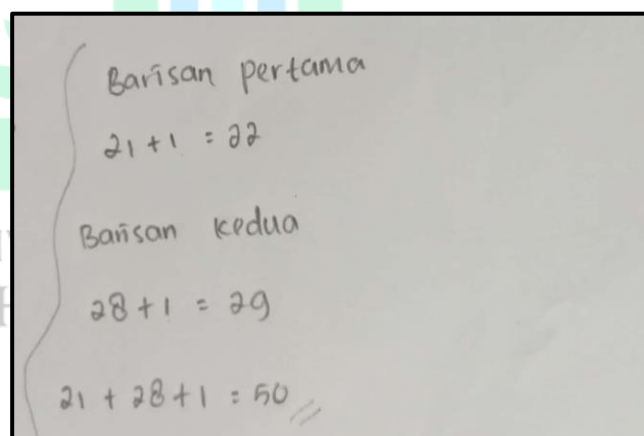 Barisan pertama
21 + 1 = 22
Barisan kedua
28 + 1 = 29
21 + 28 + 1 = 50